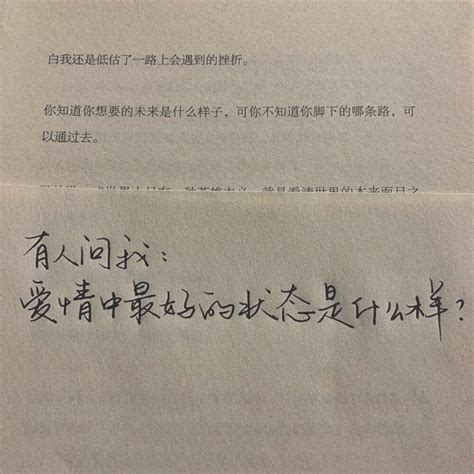 白我还是低估了一路上会遇到的挫折。
你知道你想要的未来是什么样子，可你不知道你脚下的哪条路，可
以通过去。
有人问我：
爱情中最好的状态是什么样？